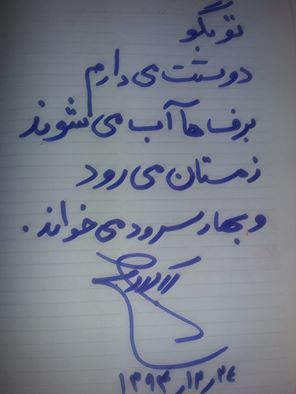 تو بگو
دوستت می دارم
برف ها آب می شوند
زمستان می رود
و بهار سرود می خواند .